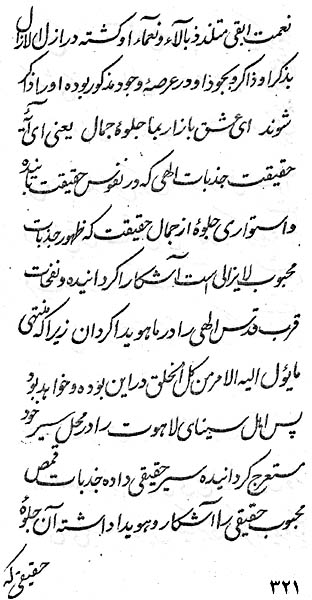 نعمت ابقی متلذذ بالآء و نعمآء او کشته در ازل الازال
بذکر او ذاکر و بجود او در عرصهٔ وجود مذکور بوده او را ذاکر
شوند ای عشق بازار بما جلوهٔ جمال یعنی ای
حقیقت جذبات الهی که در نفوس حقیقت تابنیده
و استواری جلوهٔ از جمال حقیقت که ظهور جذبات
محبوب لایزالی است آشکار اکردانیده و نفحات
قرب قدس الهی را در ما هویدا کردان زیرا که منتهی
مایؤل الیه الامر من کل الخلق در این بوده و خواهد بود
پس اهل سینای لاهوت را در محل سیر خود
مستعرج کردانیده سیر حقیقی داده جذبات قمص
محبوب حقیقی را آشکار و هویدا داشته آن جلوهٔ
حقیقی که
۳۲۱